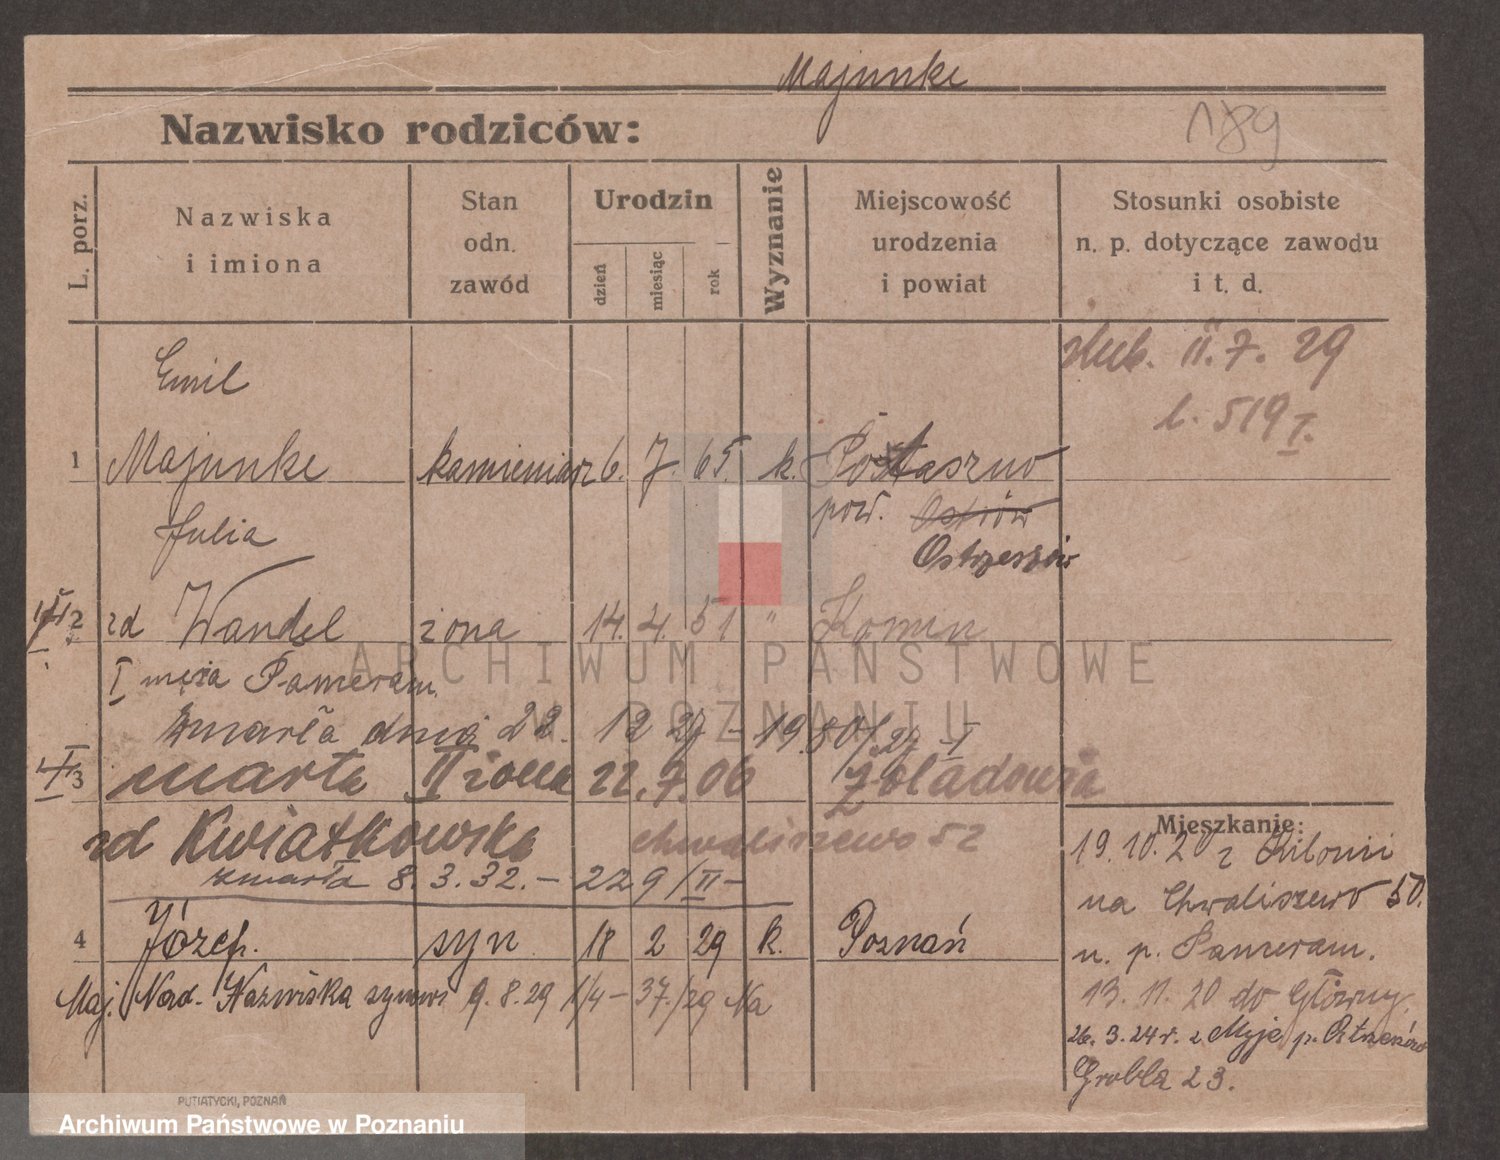 Majunke
189
Nazwisko rodziców:
L. porz.
Nazwiska i imiona
Stan odn. zawód
Urodzin
dzień
miesiąc
rok
Wyznanie
Miejscowość urodzenia i powiat
Stosunki osobiste n. p. dotyczące zawodu i t. d.
ślub. II. 7. 29
l. 519 I.
Emil
1 Majunke kamieniarz 6. 7. 65. k.
pow. Ostrów
Ostrzeszów
Julia
2 zd Wandel żona 14. 4. 51 "
I męża Pameram
zmarła dnia 22. 12 27 - 19
3 Marta II żona 22. 7. 06 Żoladowia
zd Kwiatkowska Chwaliszewo 52
zmarła 8. 3. 32. - 229/II -
4 Józef. syn 18 2 29 k. Poznań
Nazwiska 9. 8. 29
Mieszkanie:
19. 10. 20 z Kilonii
na Chwaliszewo 50.
u. p. Pameram.
13. 11. 20 do Główny
26. 3. 24 r. z Myje p. Ostrzeszów
Grobla 23.
PUTIATYCKI, POZNAŃ
ARCHIWUM PAŃSTWOWE
W POZNANIU
Archiwum Państwowe w Poznaniu